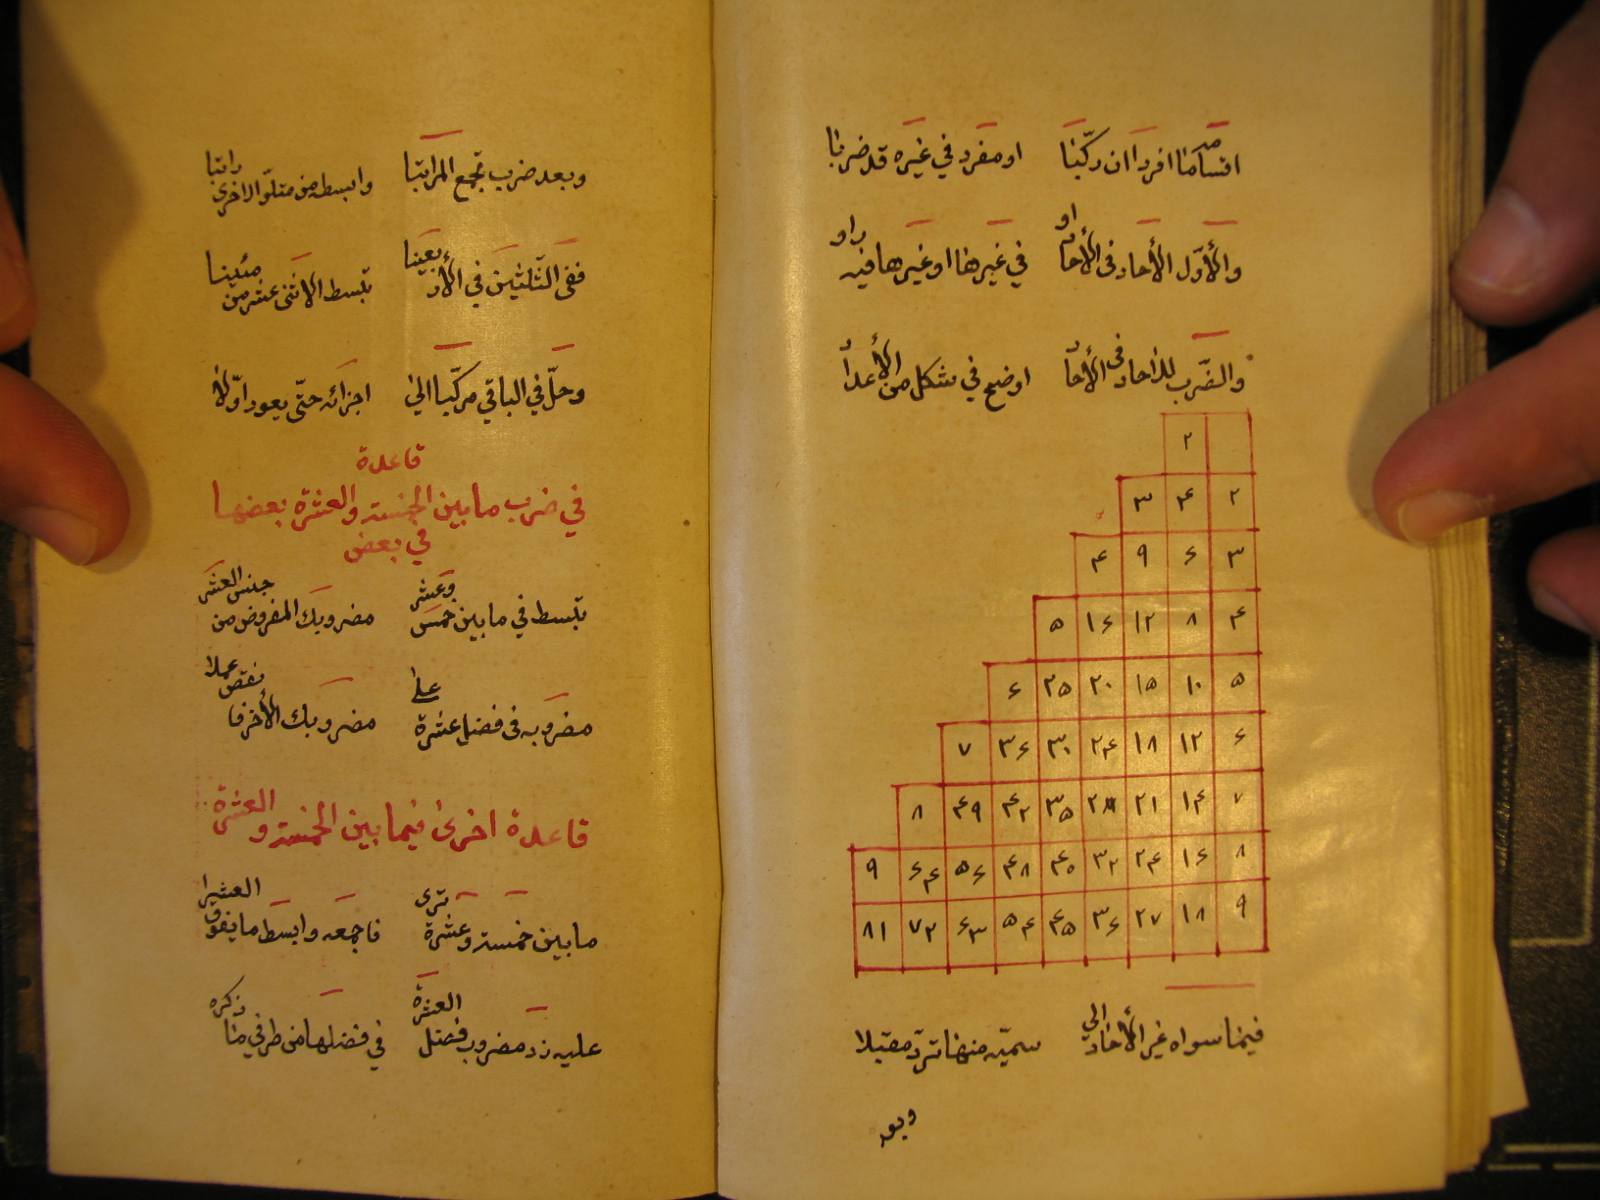 اقسامه اما افردا ان ركّبنا او مفرد في غيره قد ضربا
والأوّل الأحاد في الأحاد او في غيرها او غيرها فيه راو
والضّرب للاحاد في الأحاد اوضح في شكل من الأعداد
۲
۲ ۴ ۳
۳ ۶ ۹ ۴
۴ ۸ ۱۲ ۱۶ ۵
۵ ۱۰ ۱۵ ۲۰ ۲۵ ۶
۶ ۱۲ ۱۸ ۲۴ ۳۰ ۳۶ ۷
۷ ۱۴ ۲۱ ۲۸ ۳۵ ۴۲ ۴۹ ۸
۸ ۱۶ ۲۴ ۳۲ ۴۰ ۴۸ ۵۶ ۶۴ ۹
۹ ۱۸ ۲۷ ۳۶ ۴۵ ۵۴ ۶۳ ۷۲ ۸۱
فيما سواه غير الأحاد الي سميّه منها ترد مقبلا
وبعد
وبعد ضرب تجمع المراتبا وابسطه من متلوّ الاخرى راتبا
ففي الثّلثين في الأربعينا تبسط الاثنى عشر من مئينا
وحلّ في الباقي مركّبا الي اجزائه حتّى يعود اوّلا
قاعدة
في ضرب ما بين الخمسة والعشرة بعضها
في بعض
تبسط في ما بين خمس وعشر مضروبك المفروض من جنس العشر
مضروبه في فضل عشرة على مضروبك الأخر فانقص عملا
قاعدة اخرى فيما بين الخمسة والعشرة
ما بين خمسة وعشرة ترى فاجمعه وابسط ما يفوق العشرا
عليه زد مضروب فضل العشرة في فضلها من طرفي ما ذكره